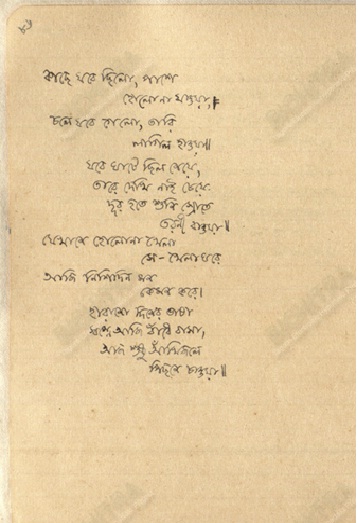 ৮৬
কাছে যবে ছিলো, পাশে
হোলোনা যাওয়া,
চলে যবে গেলো, তারি
লাগিল হাওয়া॥
যবে ঘাটে ছিল নেয়ে,
তারে দেখি নাই চেয়ে,
দূর হতে শুনি স্রোতে
তরণী বাওয়া॥
যেখানে হোলোনা খেলা
সে-খেলাঘরে
আজি নিশিদিন মন
কেমন করে।
হারানো দিনের ভাষা
স্বপ্নে আজি বাঁধে বাসা,
আজ শুধু আঁখিজলে
পিছনে চাওয়া॥